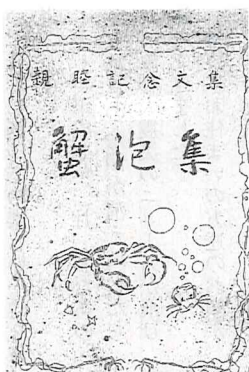 親睦記念文集
蟹泡集